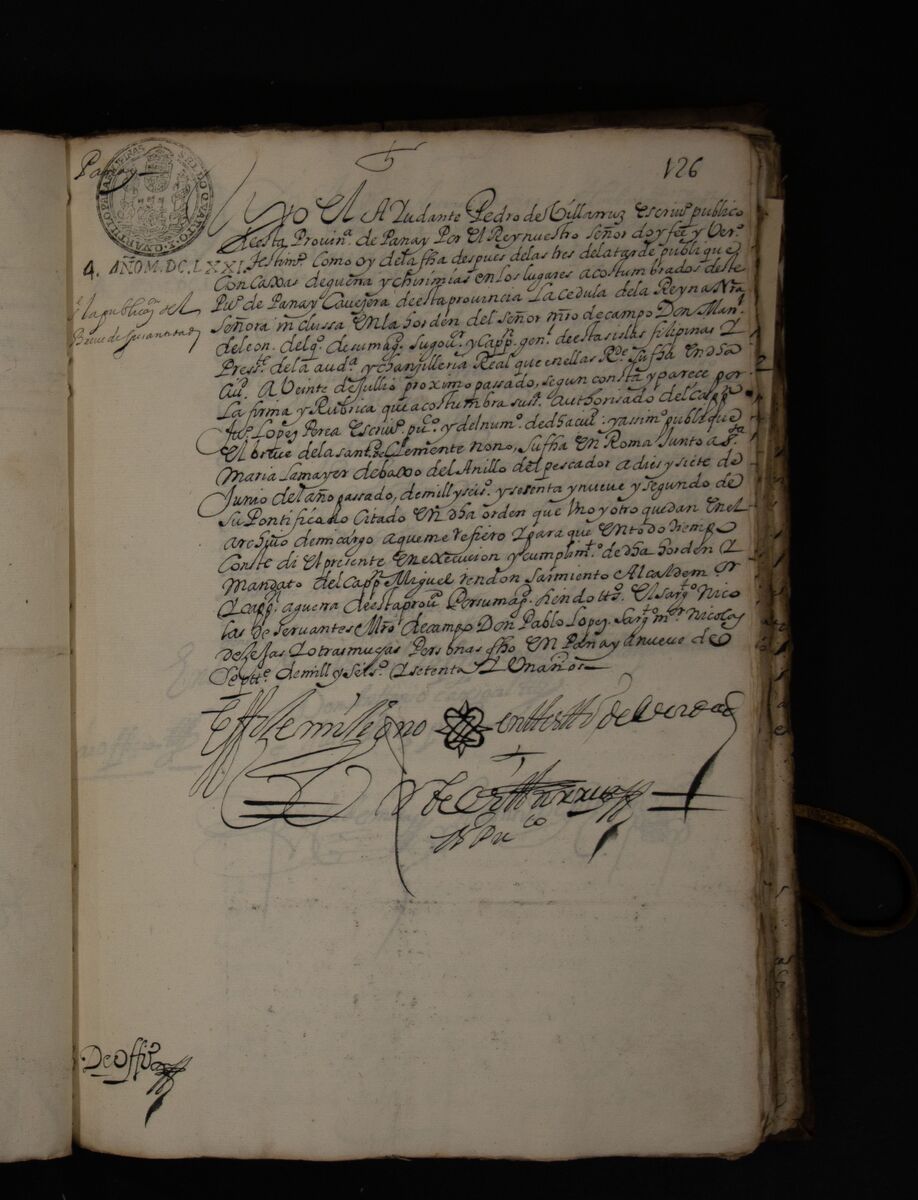 Panay
126
SELLO QVARTO, Y QVARTILLO
Yo El Ayudante Pedro de Villarruz Escriuº publico
de esta Prouinª de Panay Por El Rey nuestro señor doy fee y Verº
4. AÑO M.DC.LXXI.
testimº como oy de la fha despues de las tres de la tarde publique
Con Caxas de guerra y chirimias en los lugares acostumbrados deste
Pueº de Panay Cauesera de esta prouincia La cedula de la Reyna Nrª
la publicªⁿ del
Breue de su santidad
Señora inclussa en la horden del señor mro de campo Don Manl
de leon. del qº de su magd. su gouorʳ y cappⁿ genˡ de estas islas filipinas Y
Presteᵉ de la audª y chansilleria Real que en ellas Rde su fha en dha
Ciuᵈ A Veinte de Jullio proximo passado, segun consta y parece por
La firma y Rubrica que acostumbra susᵒ. authorisado del cappⁿ
Juº Lopez Perea Escriuº puᶜᵒ y del numº de dha ciuᵈ: y assimº publique
El breue de la santᵈ de Clemente nono, su fha En Roma Junto a Sᵗᵃ
Maria La mayor debaxo del Anillo del pescador a dies y siete de
Junio del año passado, de mill y seisº y sesenta y nueue y segundo de
Su Pontificado Citado en dha orden que Vno y otro quedan en el
archiuo de mi cargo a que me refiero Y para que en todo tiempo
Conste di El presente en execucion y cumplimtº de dha horden Y
Mandato del cappⁿ Miguel rendon Sarmiento Alcalde mºʳ
Y cappⁿ a guerra de esta prouᵃ Por su magᵈ. siendo ttºˢ El sargᵗᵒ Nico
las de Servantes Mrº de campo Don Pablo Lopez sargᵗᵒ mºʳ Nicolas
de Rojas Y otras muchas Personas fho En Panay a nueue de
Septtᵉ de mill y seisº Y setenta Y Un años
En fee de mi signo en testimº de Verdad
Pº de Villarruz
Essº Puᶜᵒ
De Offiº